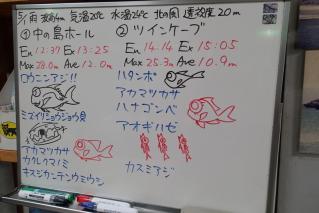 5/1 雨 波高4m 気温20℃ 水温24℃ 北の風 透視度20m
①中の島ホール
En 12:37 Ex 13:25
Max 28.0m Ave 12.0m
ロウニンアジ!!
ミズイリショウジョウ貝
アカマツカサ
カクレクマノミ
キスジカンテンウミウシ
②ツインケーブ
En 14:14 Ex 15:05
Max 25.3m Ave 10.9m
ハタンポ
アカマツカサ
ハナゴンベ
アオギハゼ
カスミアジ